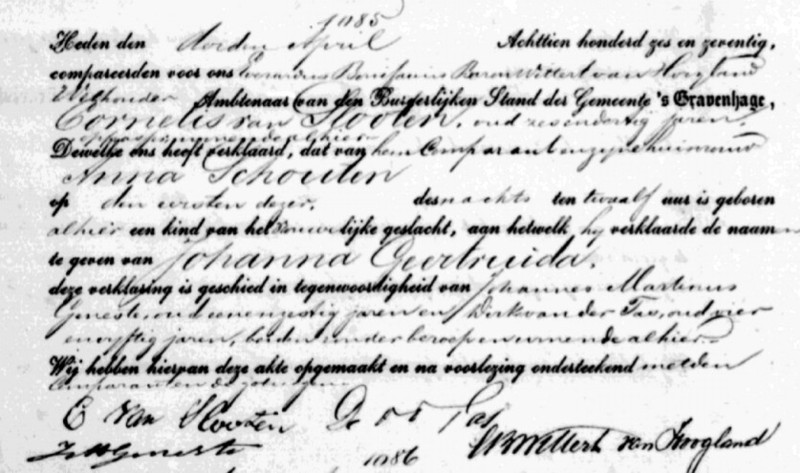 1085
Heden den derden April Achttien honderd zes en zeventig,
compareerden voor ons Everardus Bonifacius Baron Wittert van Hoogland
Wethouder Ambtenaar van den Burgerlijken Stand der Gemeente 's Gravenhage,
Cornelis van Slooten, oud zesendertig jaren,
wonende alhier
Dewelke ons heeft verklaard, dat van hem Comparant en zyne huisvrouw
Anna Schouten
op den eersten dezer, des nachts ten twaalf uur is geboren
alhier een kind van het vrouwelijke geslacht, aan hetwelk hy verklaarde de naamen
te geven van Johanna Geertruida.
deze verklaring is geschied in tegenwoordigheid van Johannes Martinus
Geneste, oud eenenzestig jaren en Dirk van der Tas, oud vier
envyftig jaren, beiden zonder beroep en wonende alhier.
Wij hebben hiervan deze akte opgemaakt en na voorlezing onderteekend met den
Comparant en de getuigen
C van Slooten D v d Tas
J M Geneste EB Wittert van Hoogland
1086